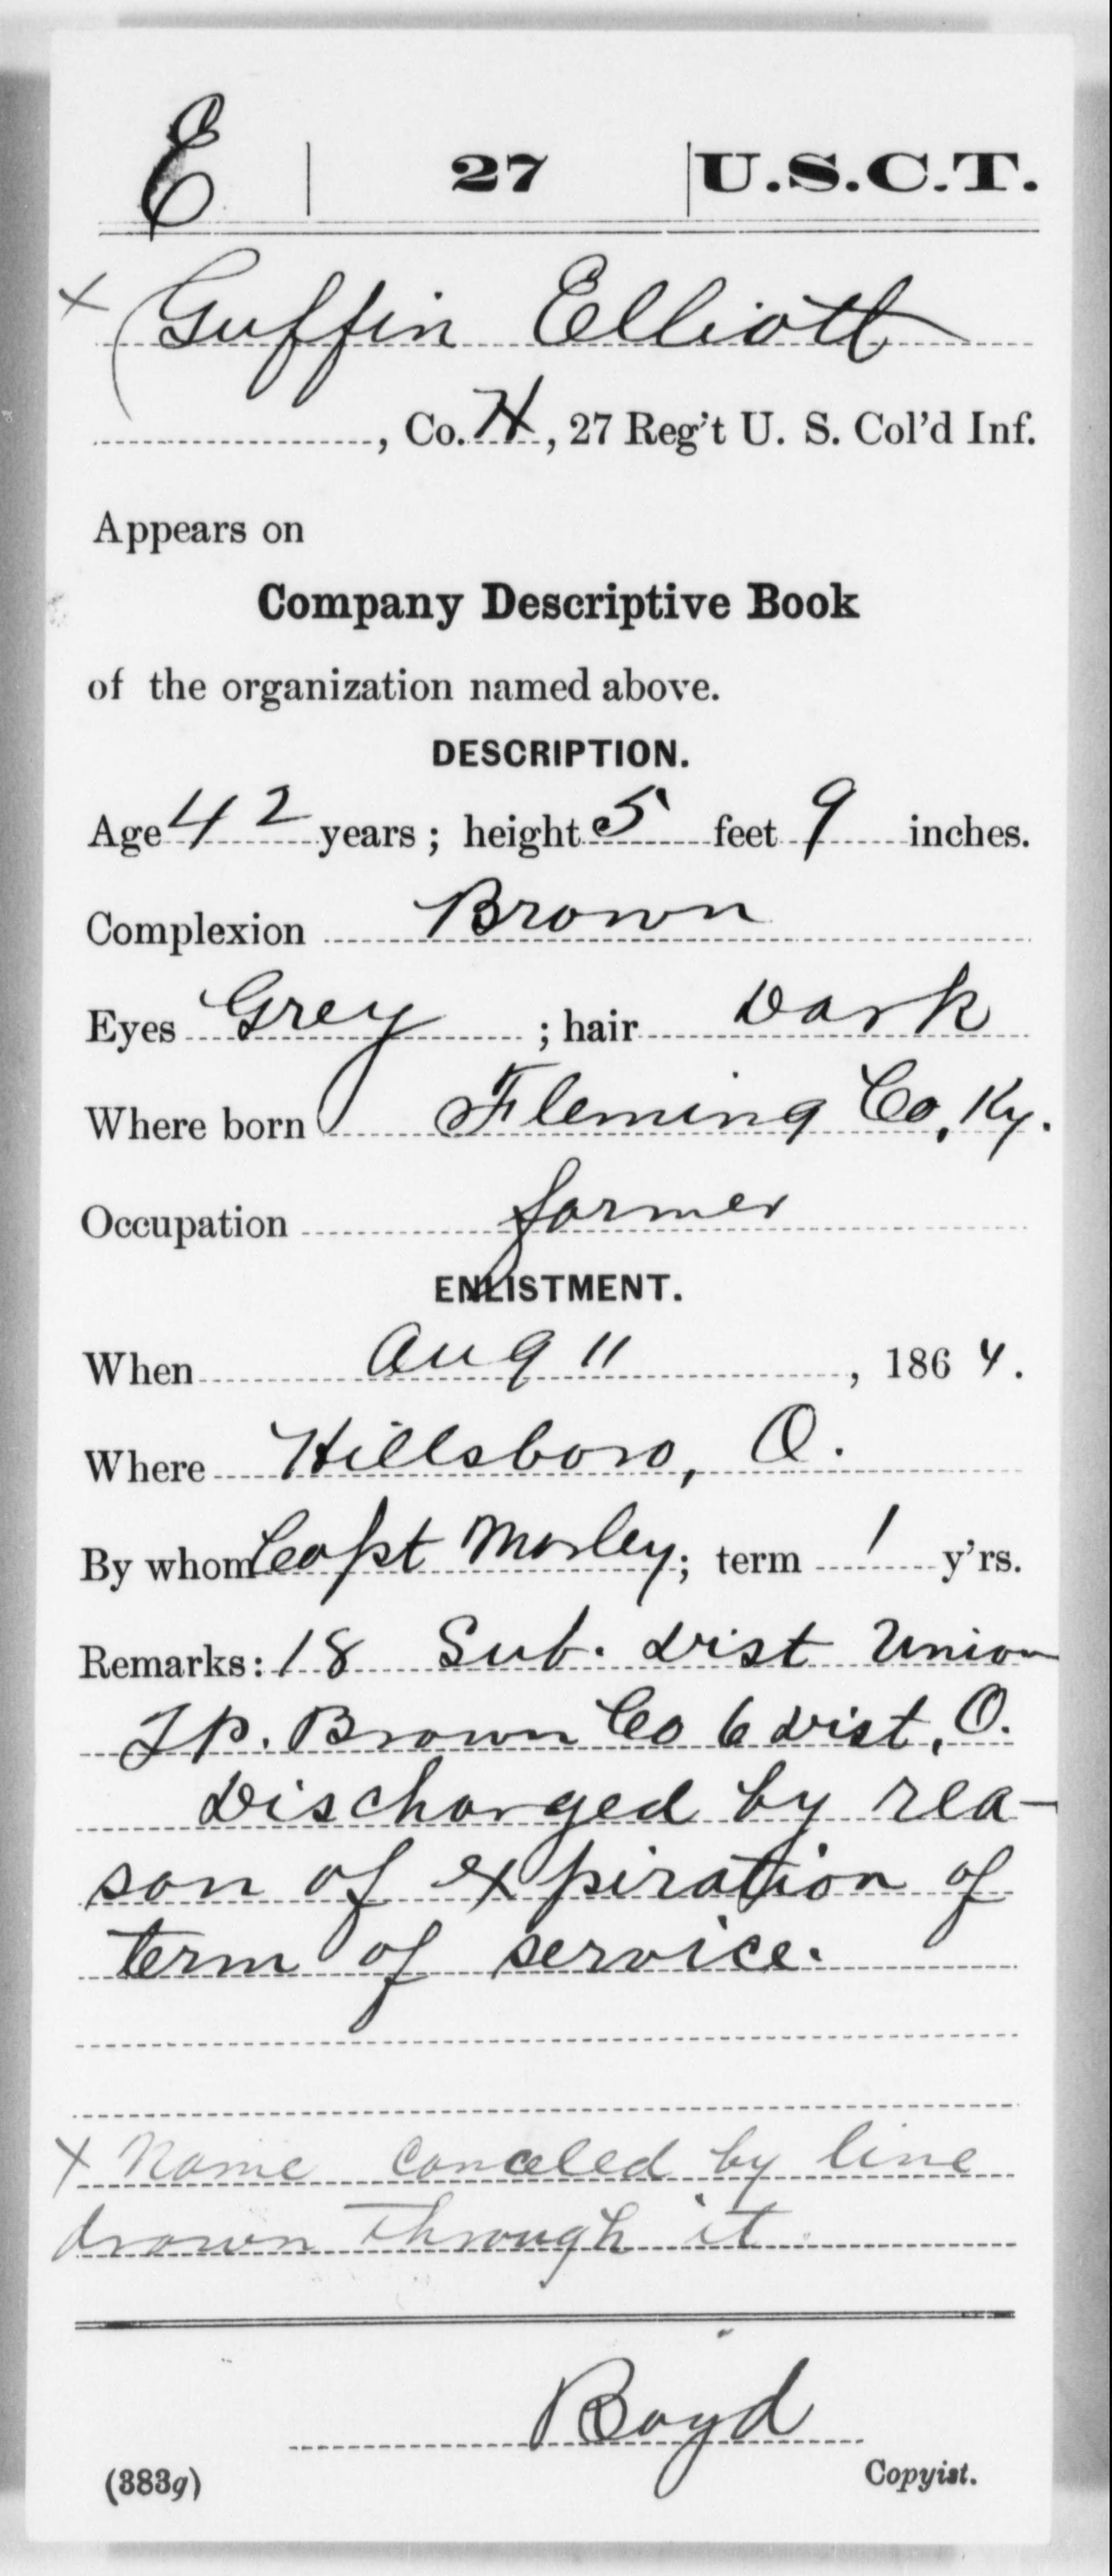 E | 27 | U.S.C.T.
x Guffin Elliott
, Co. H, 27 Reg't U. S. Col'd Inf.
Appears on
Company Descriptive Book
of the organization named above.
DESCRIPTION.
Age 42 years; height 5 feet 9 inches.
Complexion Brown
Eyes Grey ; hair Dark
Where born Fleming Co, Ky.
Occupation farmer
ENLISTMENT.
When Aug 11 , 1864.
Where Hillsboro, O.
By whom Capt Morley; term 1 y'rs.
Remarks: 18 Sub. Dist Union
Tp. Brown Co 6 Dist, O.
Discharged by rea-
son of expiration of
term of service.
x Name canceled by line
drawn through it
Boyd
(383g) Copyist.